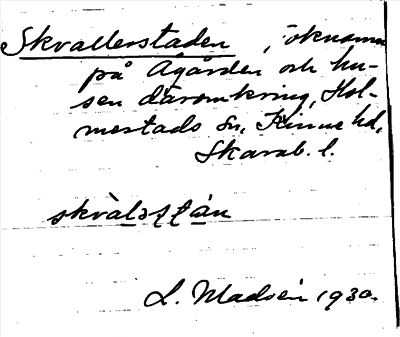 Skvallerstaden, öknamn
på Ågården och hu-
sen däromkring, Hol-
mestads sn, Kinne hd,
Skarab. l.
skvàləstan
L. Madsén 1930.